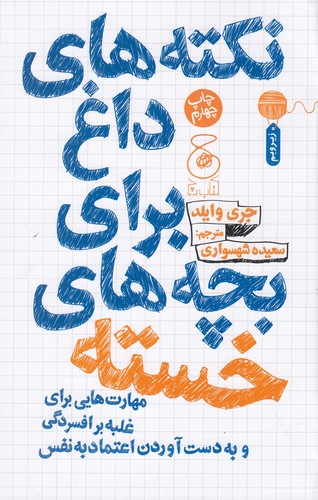 نکته‌های
داغ
چاپ
چهارم
زیر و بم
کتاب ۲
برای
جری وایلد
مترجم:
سعیده شهسواری
بچه‌های
خسته
مهارت‌هایی برای
غلبه بر افسردگی
و به دست آوردن اعتماد به نفس